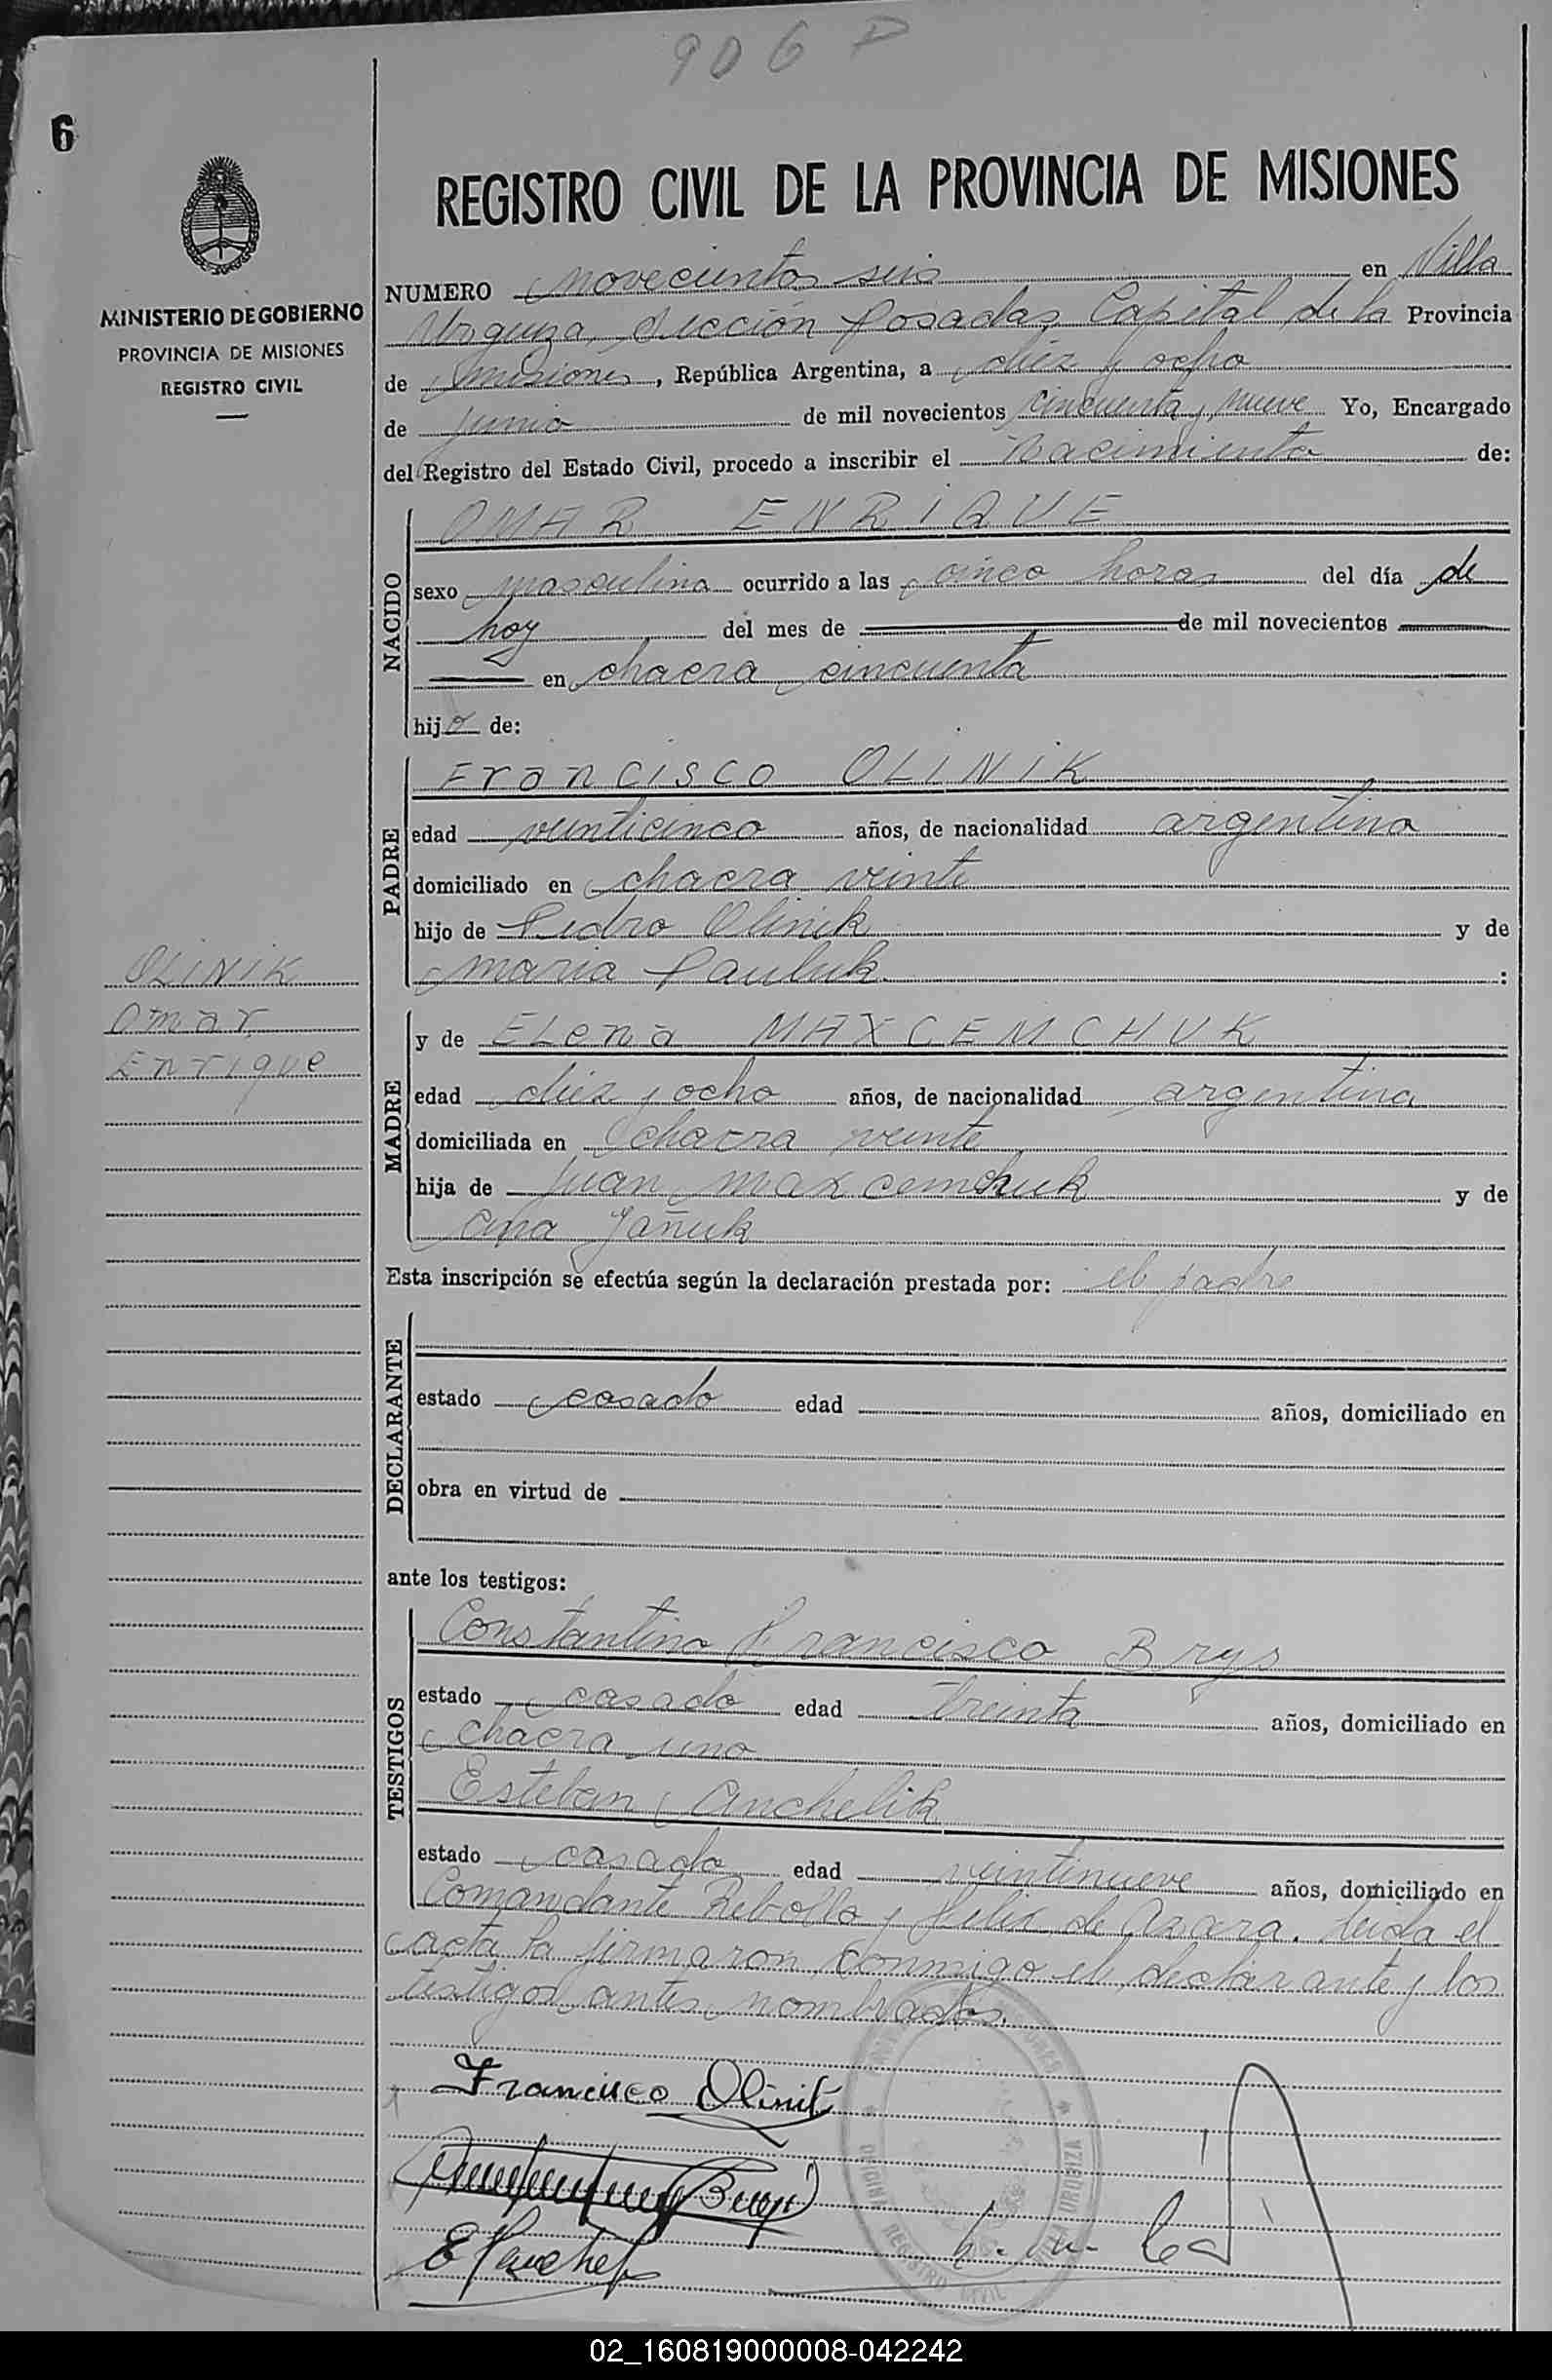 906 D
6
REGISTRO CIVIL DE LA PROVINCIA DE MISIONES
MINISTERIO DE GOBIERNO
PROVINCIA DE MISIONES
REGISTRO CIVIL
NUMERO novecientos seis en Villa
Urquiza, sección Posadas, Capital de la Provincia
de Misiones, República Argentina, a diez y ocho
de junio de mil novecientos cincuenta y nueve Yo, Encargado
del Registro del Estado Civil, procedo a inscribir el Nacimiento de:
NACIDO
OMAR ENRIQUE
sexo masculino ocurrido a las cinco horas del día de
hoy del mes de de mil novecientos
en chacra cincuenta
hijo de:
PADRE
Francisco OLINIK
edad veinticinco años, de nacionalidad argentina
domiciliado en chacra veinte
hijo de Pedro Olinik y de
maria Pauluk :
OLINIK
Omar
Enrique
MADRE
y de ELena MAXCEMCHUK
edad diez y ocho años, de nacionalidad argentina
domiciliada en chacra veinte
hija de Juan maxcemchuk y de
Ana Jañuk
Esta inscripción se efectúa según la declaración prestada por: el padre
DECLARANTE
estado casado edad años, domiciliado en
obra en virtud de
ante los testigos:
TESTIGOS
Constantino Francisco Brys
estado casado edad treinta años, domiciliado en
chacra uno
Esteban Anchelik
estado casado edad veintinueve años, domiciliado en
Comandante Rebollo y Felix de Azara. Leida el
acta la firmaron conmigo el declarante y los
testigos antes nombrados.
Francisco Olinik
OFICINA REGISTRO CIVIL VILLA URQUIZA
02_160819000008-042242